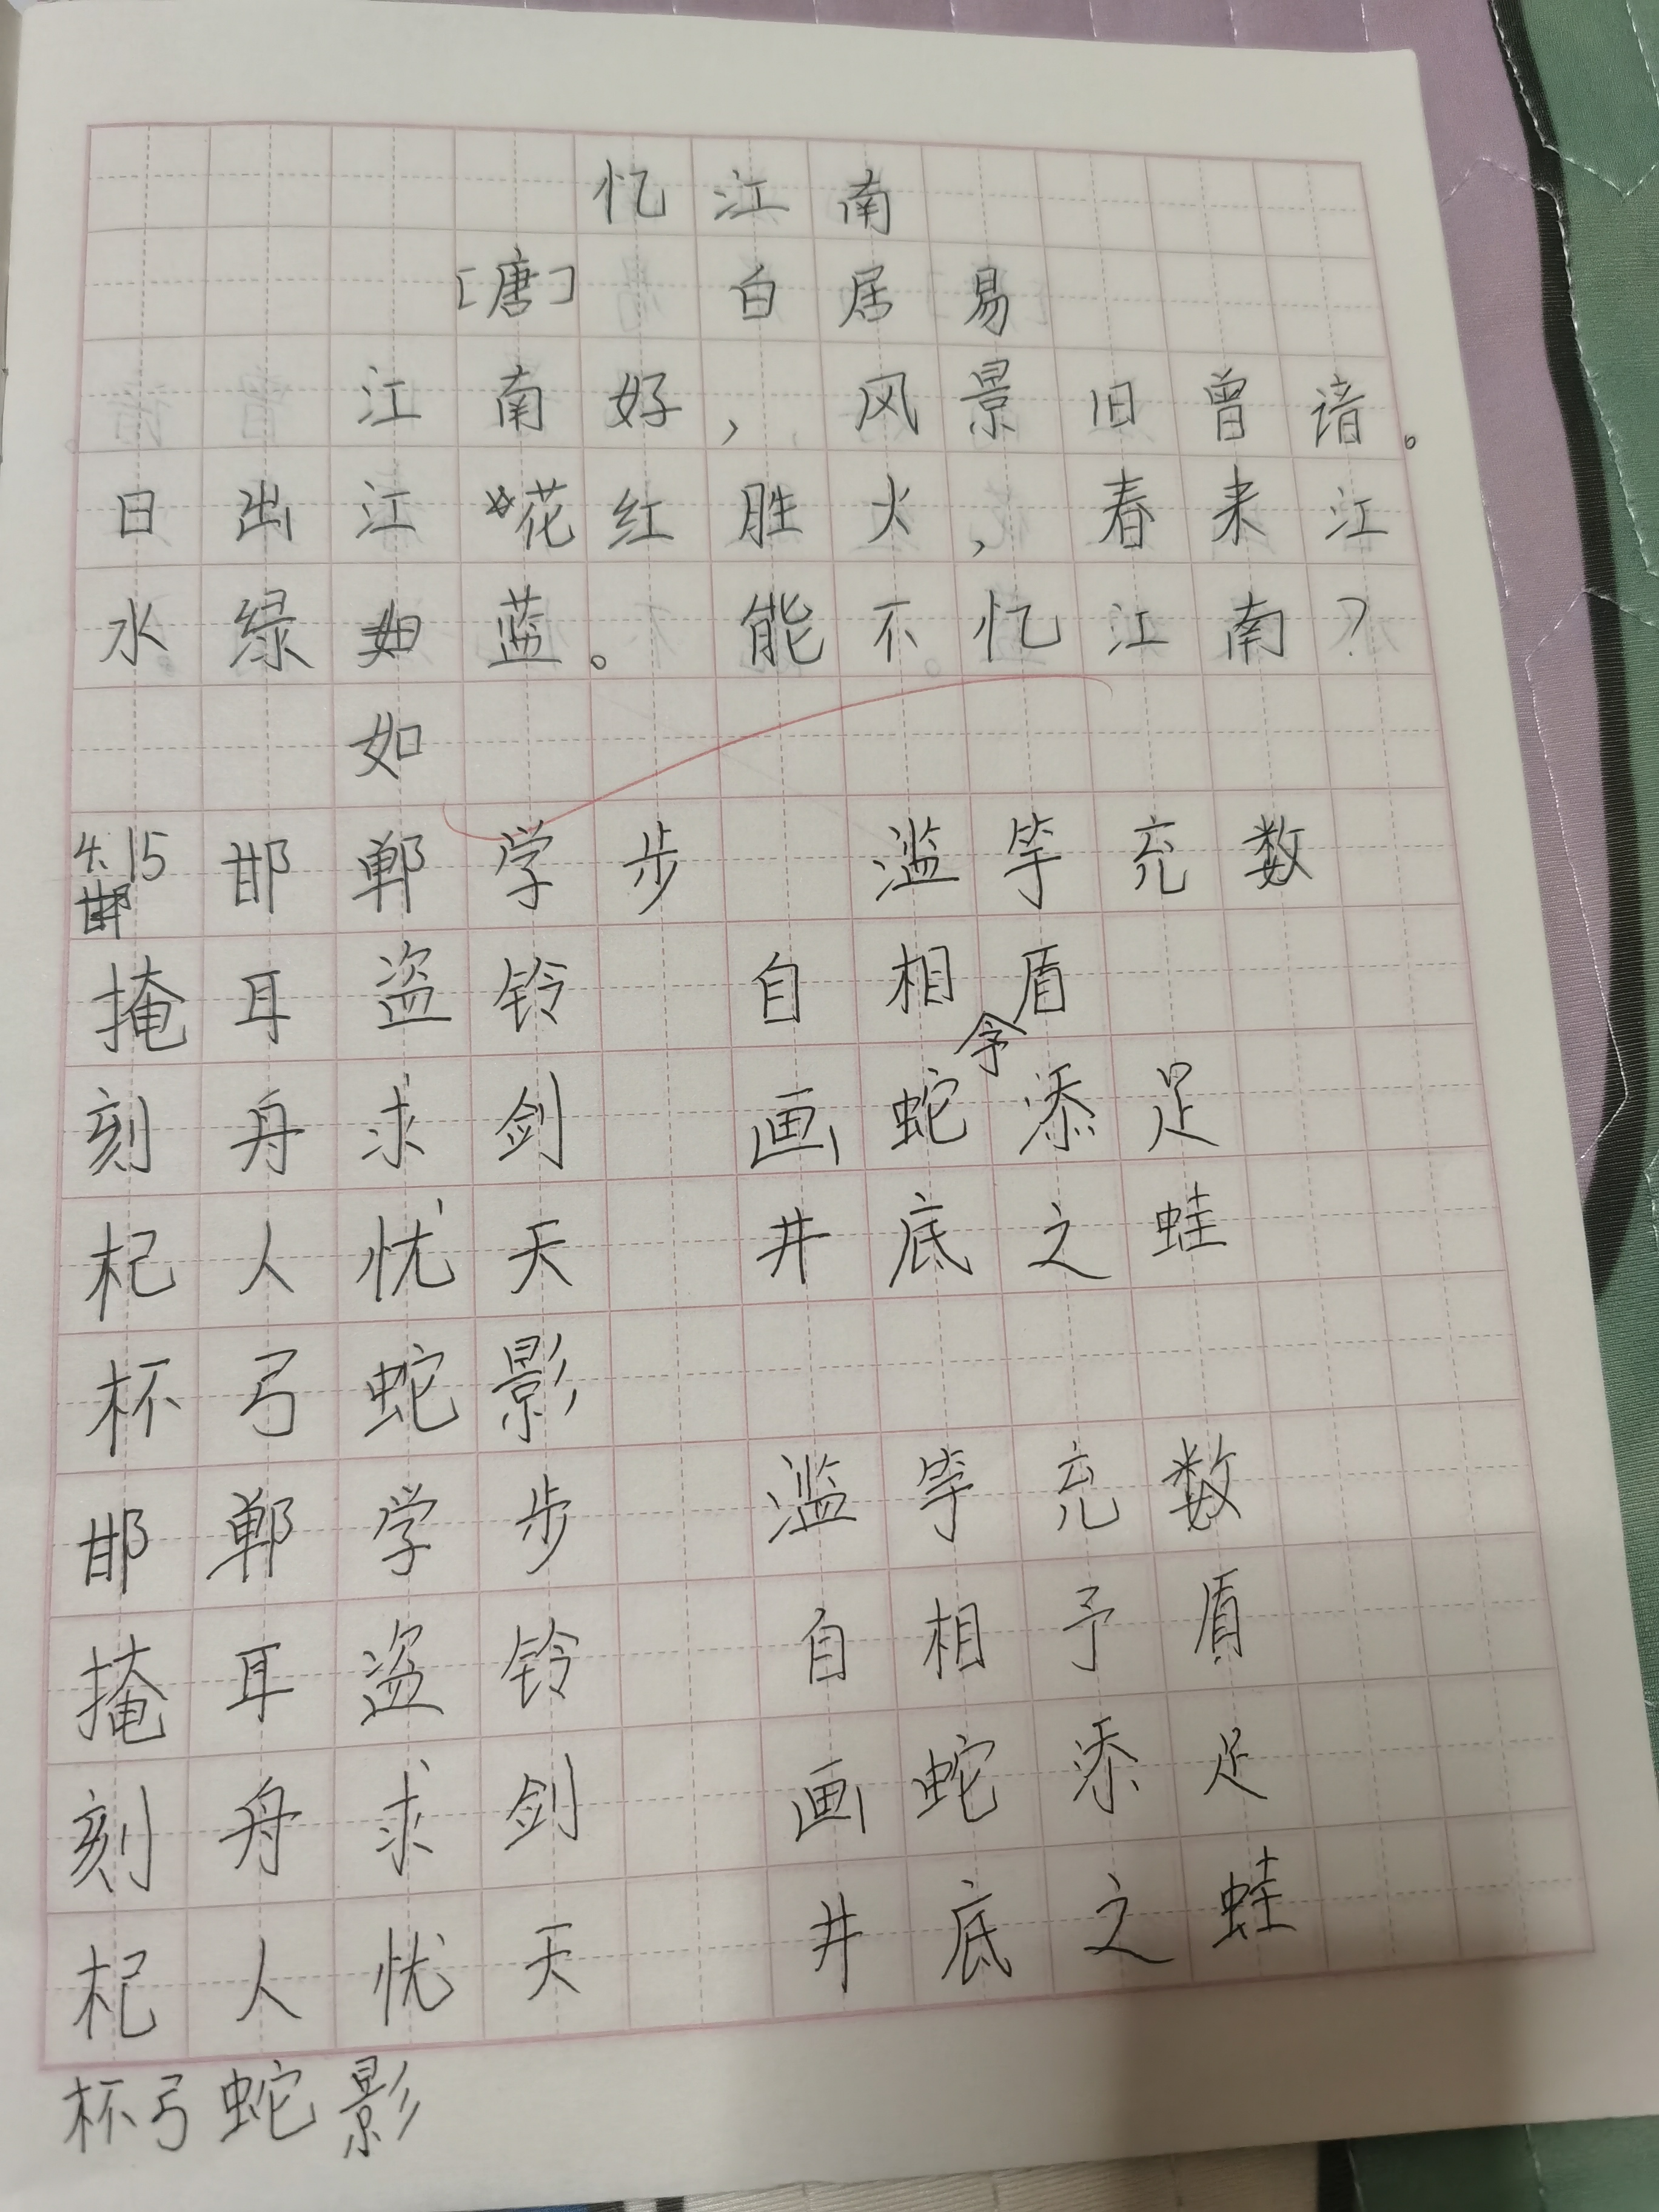 忆江南
[唐] 白居易
江南好，风景旧曾谙。
日出江花红胜火，春来江
水绿如蓝。能不忆江南？
如
4.15 邯郸学步 滥竽充数
邯
掩耳盗铃 自相予盾
刻舟求剑 画蛇添足
杞人忧天 井底之蛙
杯弓蛇影
邯郸学步 滥竽充数
掩耳盗铃 自相予盾
刻舟求剑 画蛇添足
杞人忧天 井底之蛙
杯弓蛇影